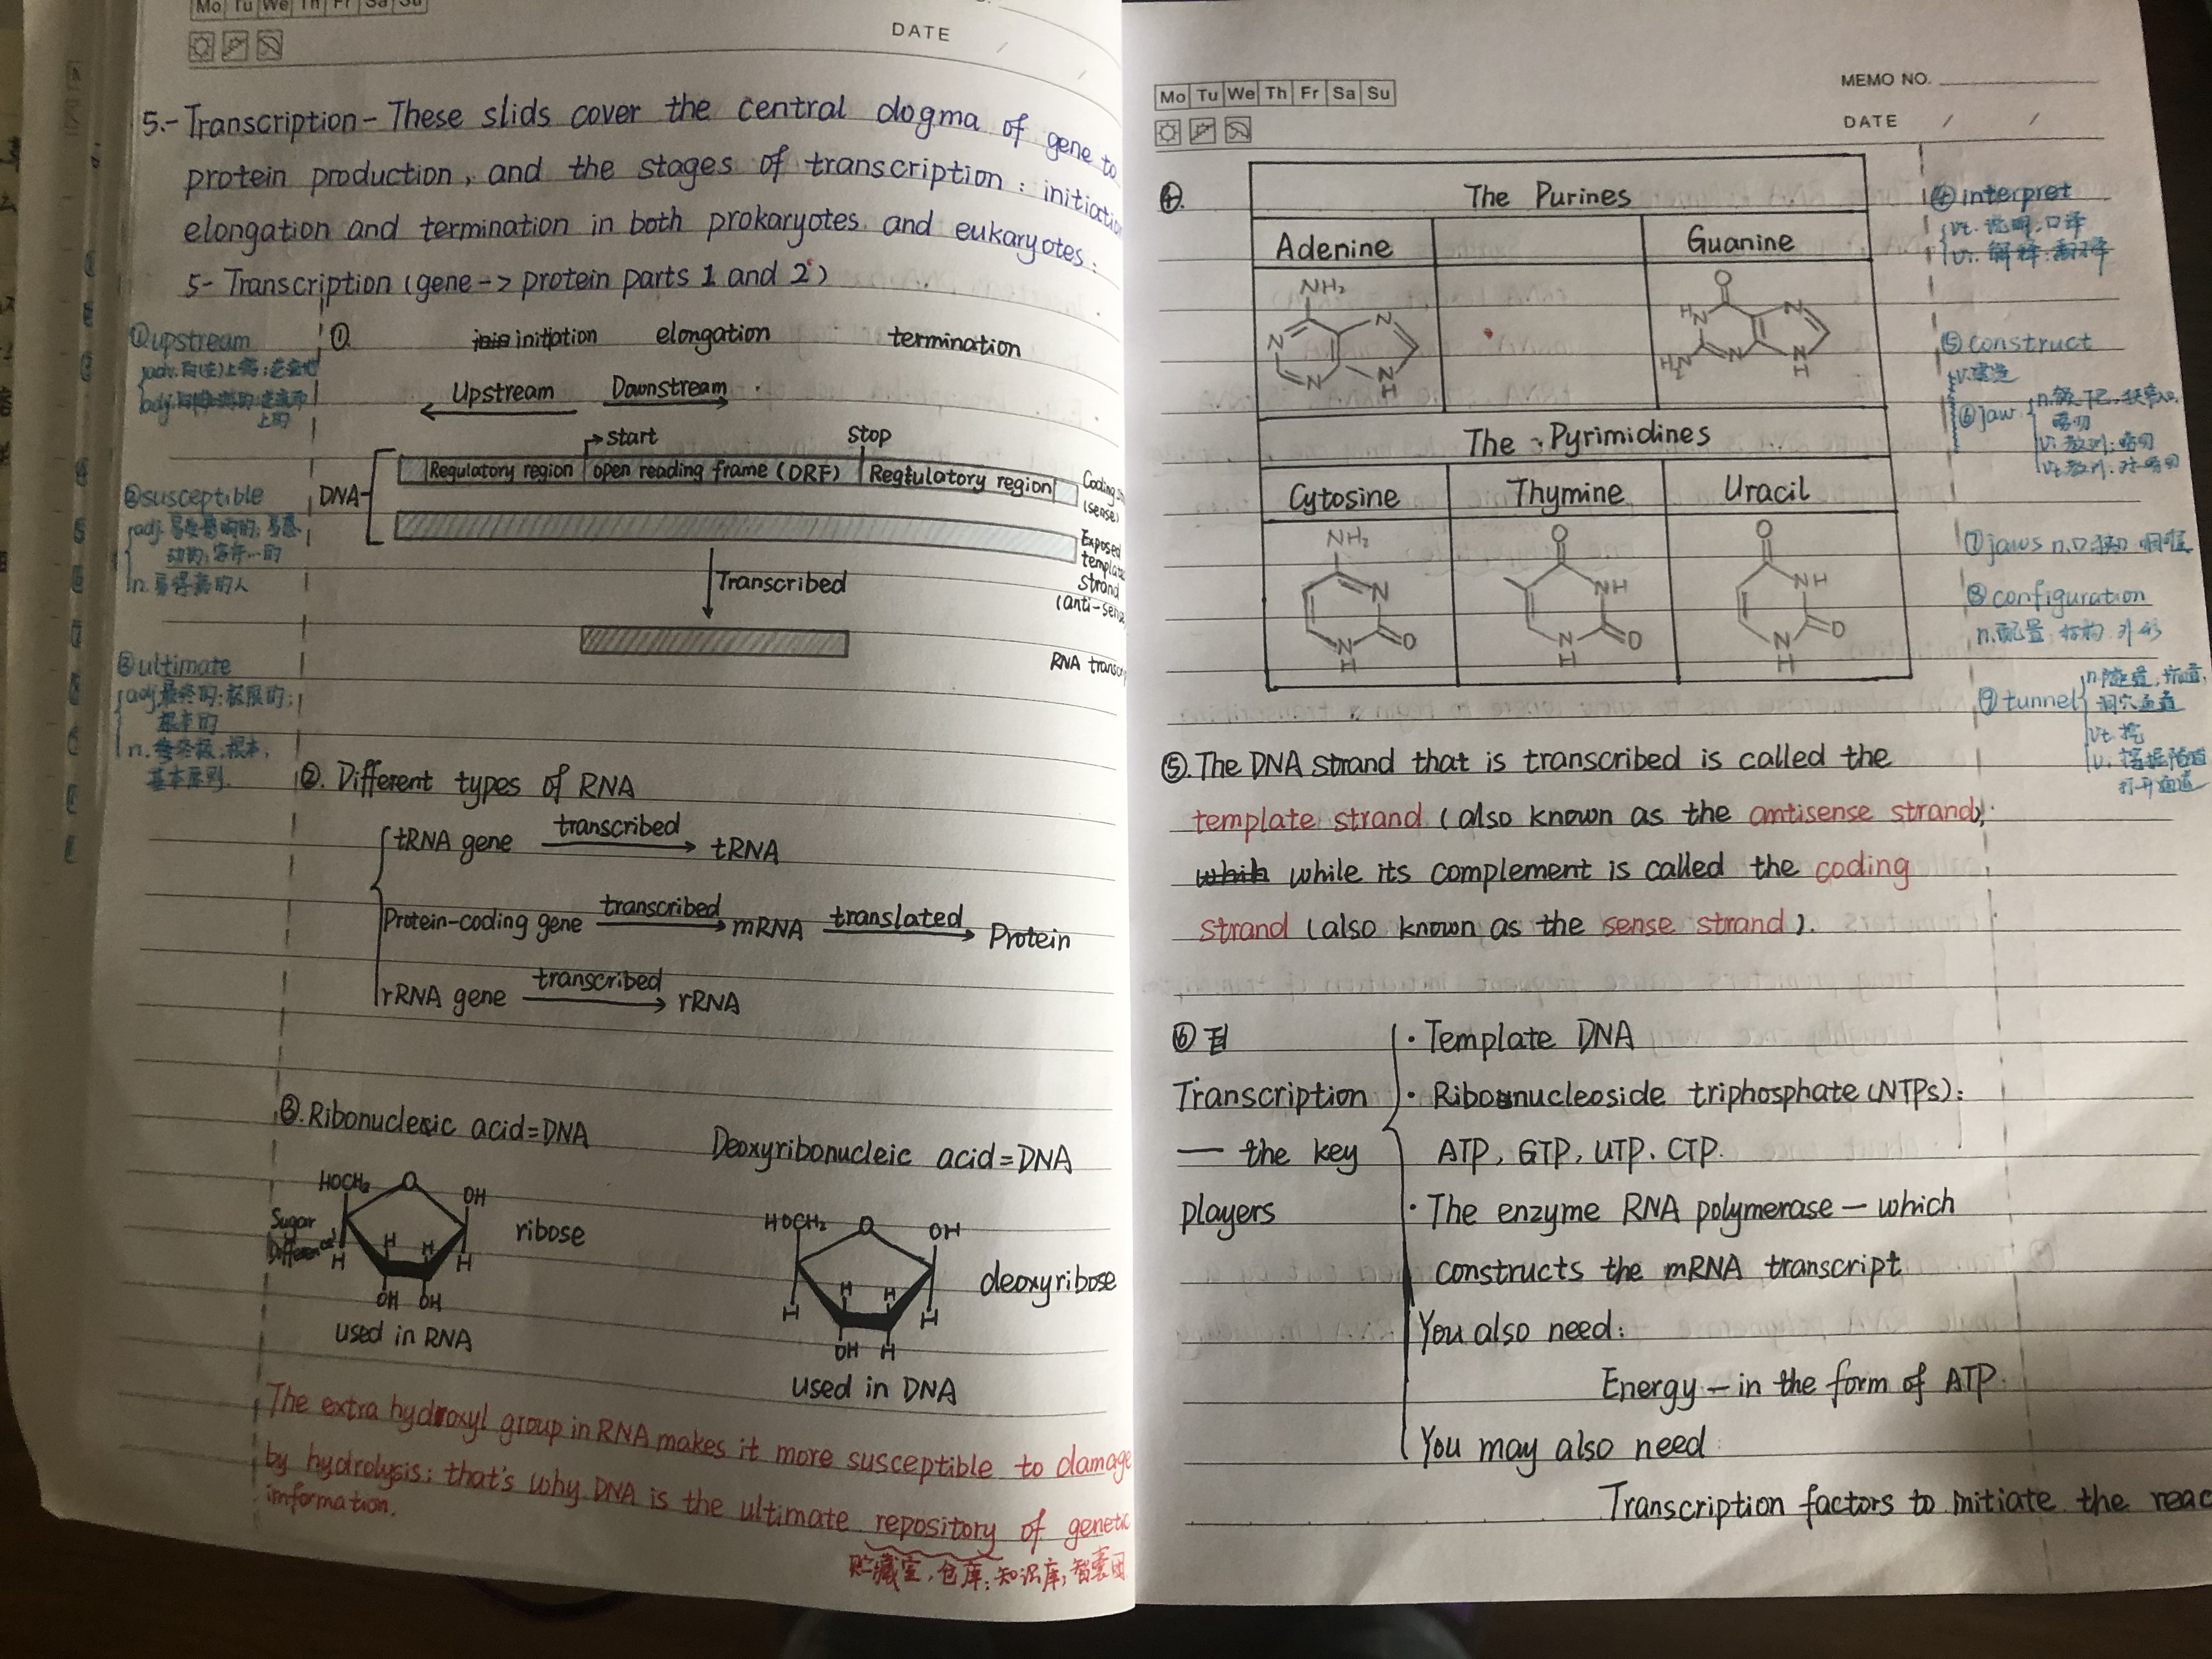 Mo Tu We Th Fr Sa Su
DATE / /
5.- Transcription - These slids cover the central dogma of gene to
protein production, and the stages of transcription : initiation
elongation and termination in both prokaryotes and eukaryotes :
5- Transcription (gene -> protein parts 1 and 2)
①upstream
adv.
adj.
上的
②susceptible
adj. 易受影响的; 易感
动的; 容许…的
n. 易得病的人
③ultimate
adj.最终的; 极限的;
根本的
n. 根本,
基本原则.
①. initiation elongation termination
Upstream Downstream
start stop
DNA Regulatory region open reading frame (ORF) Regulatory region
Coding
(sense)
Exposed
template
strand
(anti-sense
Transcribed
RNA transcr
②. Different types of RNA
tRNA gene transcribed tRNA
Protein-coding gene transcribed mRNA translated Protein
rRNA gene transcribed rRNA
③. Ribonucleic acid=DNA Deoxyribonucleic acid=DNA
HOCH₂ O OH
Sugar
Difference
H H H H
OH OH
ribose
used in RNA
HOCH₂ O OH
H H H H
OH H
deoxyribose
used in DNA
The extra hydroxyl group in RNA makes it more susceptible to damage
by hydrolysis: that's why DNA is the ultimate repository of genetic
imformation.
贮藏室, 仓库; 知识库; 智囊团
Mo Tu We Th Fr Sa Su
MEMO NO.
DATE / /
④. The Purines
Adenine Guanine
NH₂ N N N N H
O HN H₂N N N N H
The Pyrimidines
Cytosine Thymine Uracil
NH₂ N O N H
O NH O N H
O NH O N H
④interpret
vt. 说明; 口译
vi. 解释; 翻译
⑤construct
v.建造
⑥jaw
⑦jaws n.
⑧configuration
n.配置; 结构; 外形
⑨tunnel
n.隧道; 坑道;
洞穴通道
vt. 挖
打开通道
⑤. The DNA strand that is transcribed is called the
template strand (also known as the antisense strand),
while its complement is called the coding
strand (also known as the sense strand).
⑥
Transcription
— the key
players
· Template DNA
· Ribonucleoside triphosphate (NTPs):
ATP, GTP, UTP, CTP.
· The enzyme RNA polymerase — which
constructs the mRNA transcript
You also need:
Energy — in the form of ATP.
You may also need
Transcription factors to initiate the reac